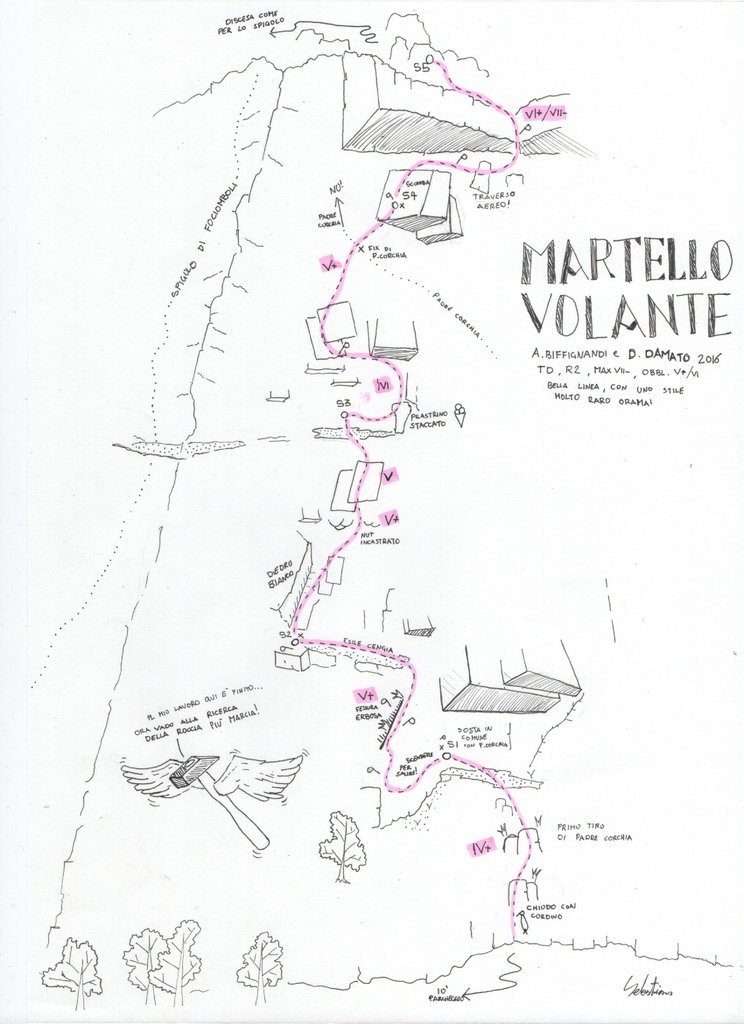 DISCESA COME
PER LO SPIGOLO
S5
VI+/VII-
SCOMODA
S4
TRAVERSO
AEREO!
NO!
PADRE
CORCHIA
SPIGOLO DI FOCIOMBOLI
FIX DI
P. CORCHIA
V+
PADRE CORCHIA
MARTELLO
VOLANTE
A. BIFFIGNANDI e D. DAMATO 2016
TD, R2, MAX VII-, OBBL. V+/VI
BELLA LINEA, CON UNO STILE
MOLTO RARO ORAMAI
VI
S3
PILASTRINO
STACCATO
V
V+
NUT
INCASTRATO
DIEDRO
BIANCO
S2
ESILE CENGIA
V+
FESSURA
ERBOSA
IL MIO LAVORO QUI E' FINITO...
ORA VADO ALLA RICERCA
DELLA ROCCIA PIÙ MARCIA!
SOSTA IN
COMUNE
CON P. CORCHIA
S1
SCENDERE
PER
SALIRE!
IV+
PRIMO TIRO
DI PADRE CORCHIA
CHIODO CON
CORDINO
10'
PARCHEGGIO